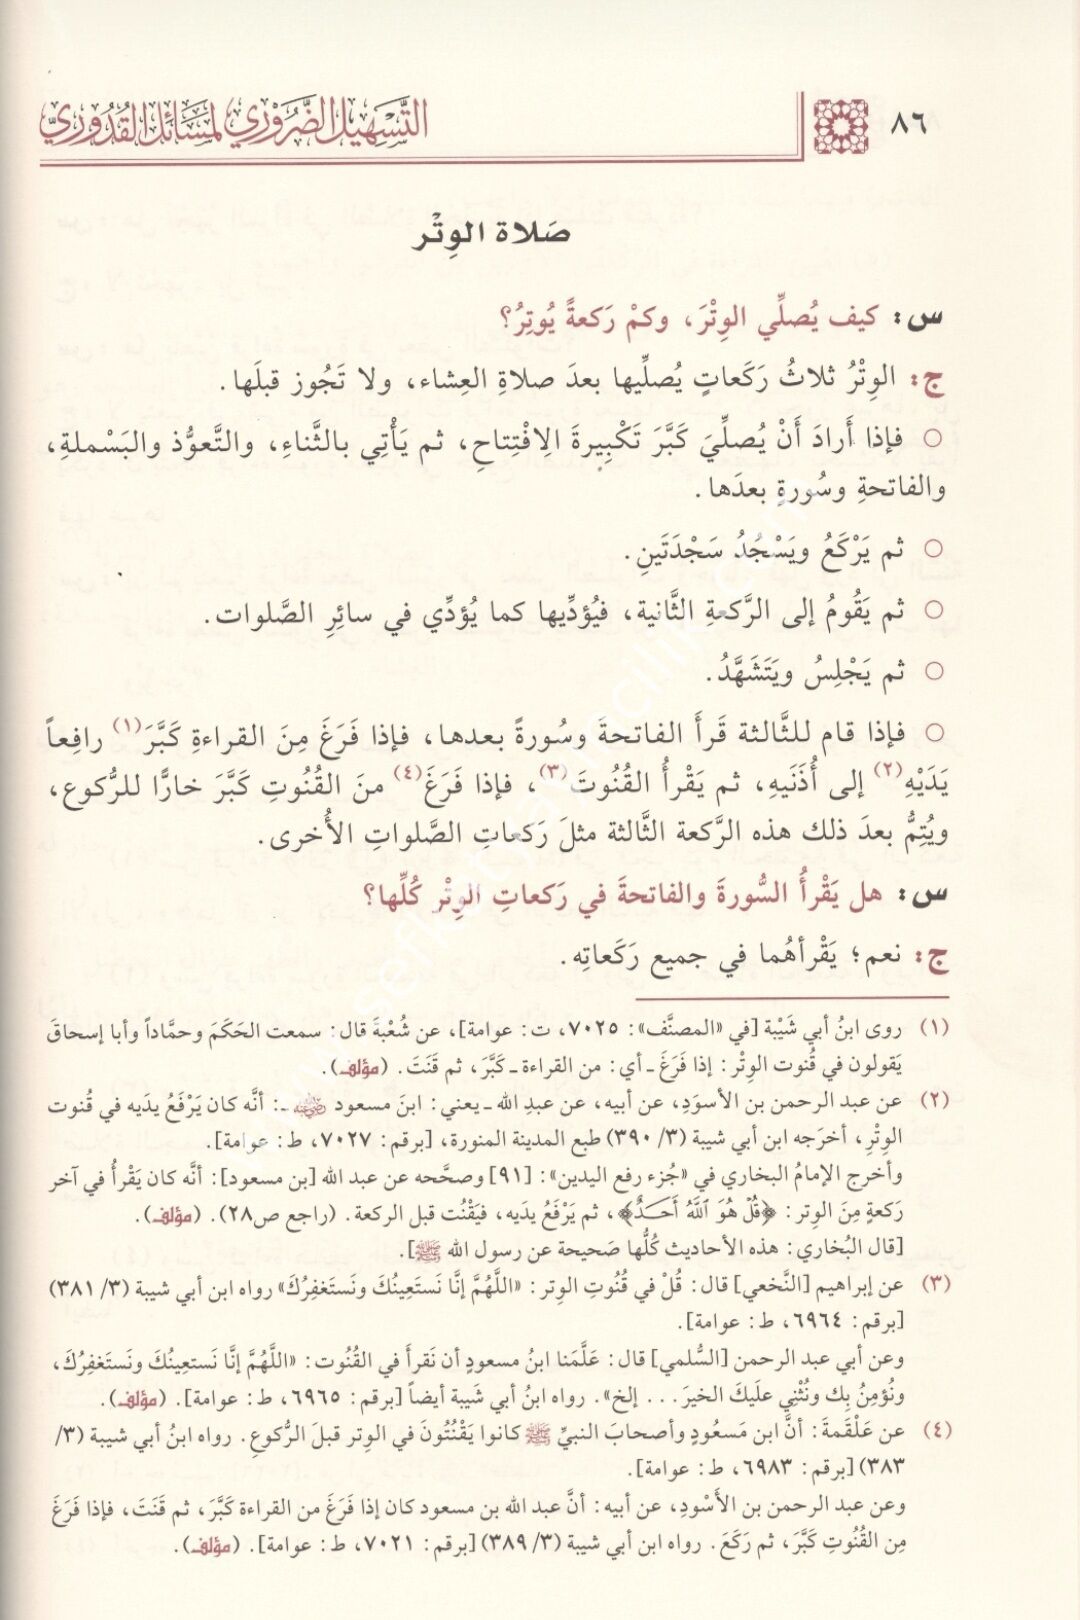 ٨٦
التَّسْهِيل الضَّرُوْري لمَسَائل القُدُوري
صَلاة الوِتْر
س: كيف يُصلِّي الوِتْرَ، وكمْ رَكعةً يُوتِرُ؟
ج: الوِتْرُ ثلاثُ رَكَعاتٍ يُصلِّيها بعدَ صلاةِ العِشاء، ولا تَجُوز قبلَها.
○ فإذا أَرادَ أَنْ يُصلِّيَ كَبَّرَ تَكْبِيرةَ الِافْتِتاحِ، ثم يَأْتِي بالثَّناءِ، والتَّعوُّذ والبَسْملةِ،
والفاتحةِ وسُورةٍ بعدَها.
○ ثم يَرْكَعُ ويَسْجُدُ سَجْدَتَينِ.
○ ثم يَقُومُ إلى الرَّكعةِ الثَّانية، فيُؤدِّيها كما يُؤدِّي في سائِرِ الصَّلوات.
○ ثم يَجْلِسُ ويَتَشَهَّدُ.
○ فإذا قام للثَّالثة قَرأَ الفاتحةَ وسُورةً بعدها، فإذا فَرَغَ مِنَ القراءةِ كَبَّرَ(١) رافِعاً
يَدَيْهِ(٢) إلى أُذَنَيهِ، ثم يَقْرأُ القُنُوتَ(٣)، فإذا فَرَغَ(٤) منَ القُنُوتِ كَبَّرَ خارًّا للرُّكوع،
ويُتِمُّ بعدَ ذلك هذه الرَّكعة الثَّالثة مثلَ رَكعاتِ الصَّلواتِ الأُخرى.
س: هل يَقْرأُ السُّورةَ والفاتحةَ في رَكعاتِ الوِتْر كُلِّها؟
ج: نعم؛ يَقْرأهُما في جميع رَكَعاتِه.
(١) روى ابنُ أبي شَيْبة [في «المصنَّف»: ٧٠٢٥، ت: عوامة]، عن شُعْبةَ قال: سمعت الحَكَمَ وحمَّاداً وأبا إسحاقَ
يَقولون في قُنوت الوِتْر: إذا فَرَغَ ـ أي: من القراءة ـ كَبَّرَ، ثم قَنَتَ. (مؤلف).
(٢) عن عبد الرحمن بن الأسوَدِ، عن أبيه، عن عبدِ الله ـ يعني: ابنَ مسعود رضي الله عنه ـ: أنَّه كان يَرْفَعُ يدَيه في قُنوت
الوِتْرِ، أخرَجه ابن أبي شيبة (٣/ ٣٩٠) طبع المدينة المنورة، [برقم: ٧٠٢٧، ط: عوامة].
وأخرج الإمامُ البخاري في «جُزء رفع اليدين»: [٩١] وصحَّحه عن عبد الله [بن مسعود]: أنَّه كان يَقْرأُ في آخر
رَكعةٍ مِنَ الوِتر: ﴿قُلْ هُوَ ٱللَّهُ أَحَدٌ﴾، ثم يَرْفَعُ يدَيه، فيَقْنُت قبل الركعة. (راجع ص٢٨). (مؤلف).
[قال البُخاري: هذه الأحاديث كُلُّها صَحيحة عن رسول الله ﷺ].
(٣) عن إبراهيم [النَّخعي] قال: قُلْ في قُنُوتِ الوتر: «اللَّهُمَّ إنَّا نَستَعِينُكَ ونَستَغفِرُكَ» رواه ابن أبي شيبة (٣/ ٣٨١)
[برقم: ٦٩٦٤، ط: عوامة].
وعن أبي عبد الرحمن [السُّلمي] قال: عَلَّمَنا ابنُ مسعودٍ أن نَقرأَ في القُنُوت: «اللَّهُمَّ إنَّا نَستعِينُكَ ونَستَغفِرُكَ،
ونُؤمِنُ بِك ونُثْنِي علَيكَ الخيرَ... إلخ». رواه ابنُ أبي شَيبة أيضاً [برقم: ٦٩٦٥، ط: عوامة]. (مؤلف).
(٤) عن عَلْقمةَ: أنَّ ابن مَسعُودٍ وأصحابَ النبيِّ ﷺ كانوا يَقْنُتُونَ في الوتر قبلَ الرُّكوعِ. رواه ابنُ أبي شيبة (٣/
٣٨٣) [برقم: ٦٩٨٣، ط: عوامة].
وعن عبد الرحمن بن الأَسْودِ، عن أبيه: أنَّ عبد الله بن مسعود كان إذا فَرَغَ من القراءة كَبَّرَ، ثم قَنَتَ، فإذا فَرَغَ
مِن القُنُوتِ كَبَّرَ، ثم رَكَعَ. رواه ابن أبي شيبة (٣/ ٣٨٩) [برقم: ٧٠٢١، ط: عوامة]. (مؤلف).